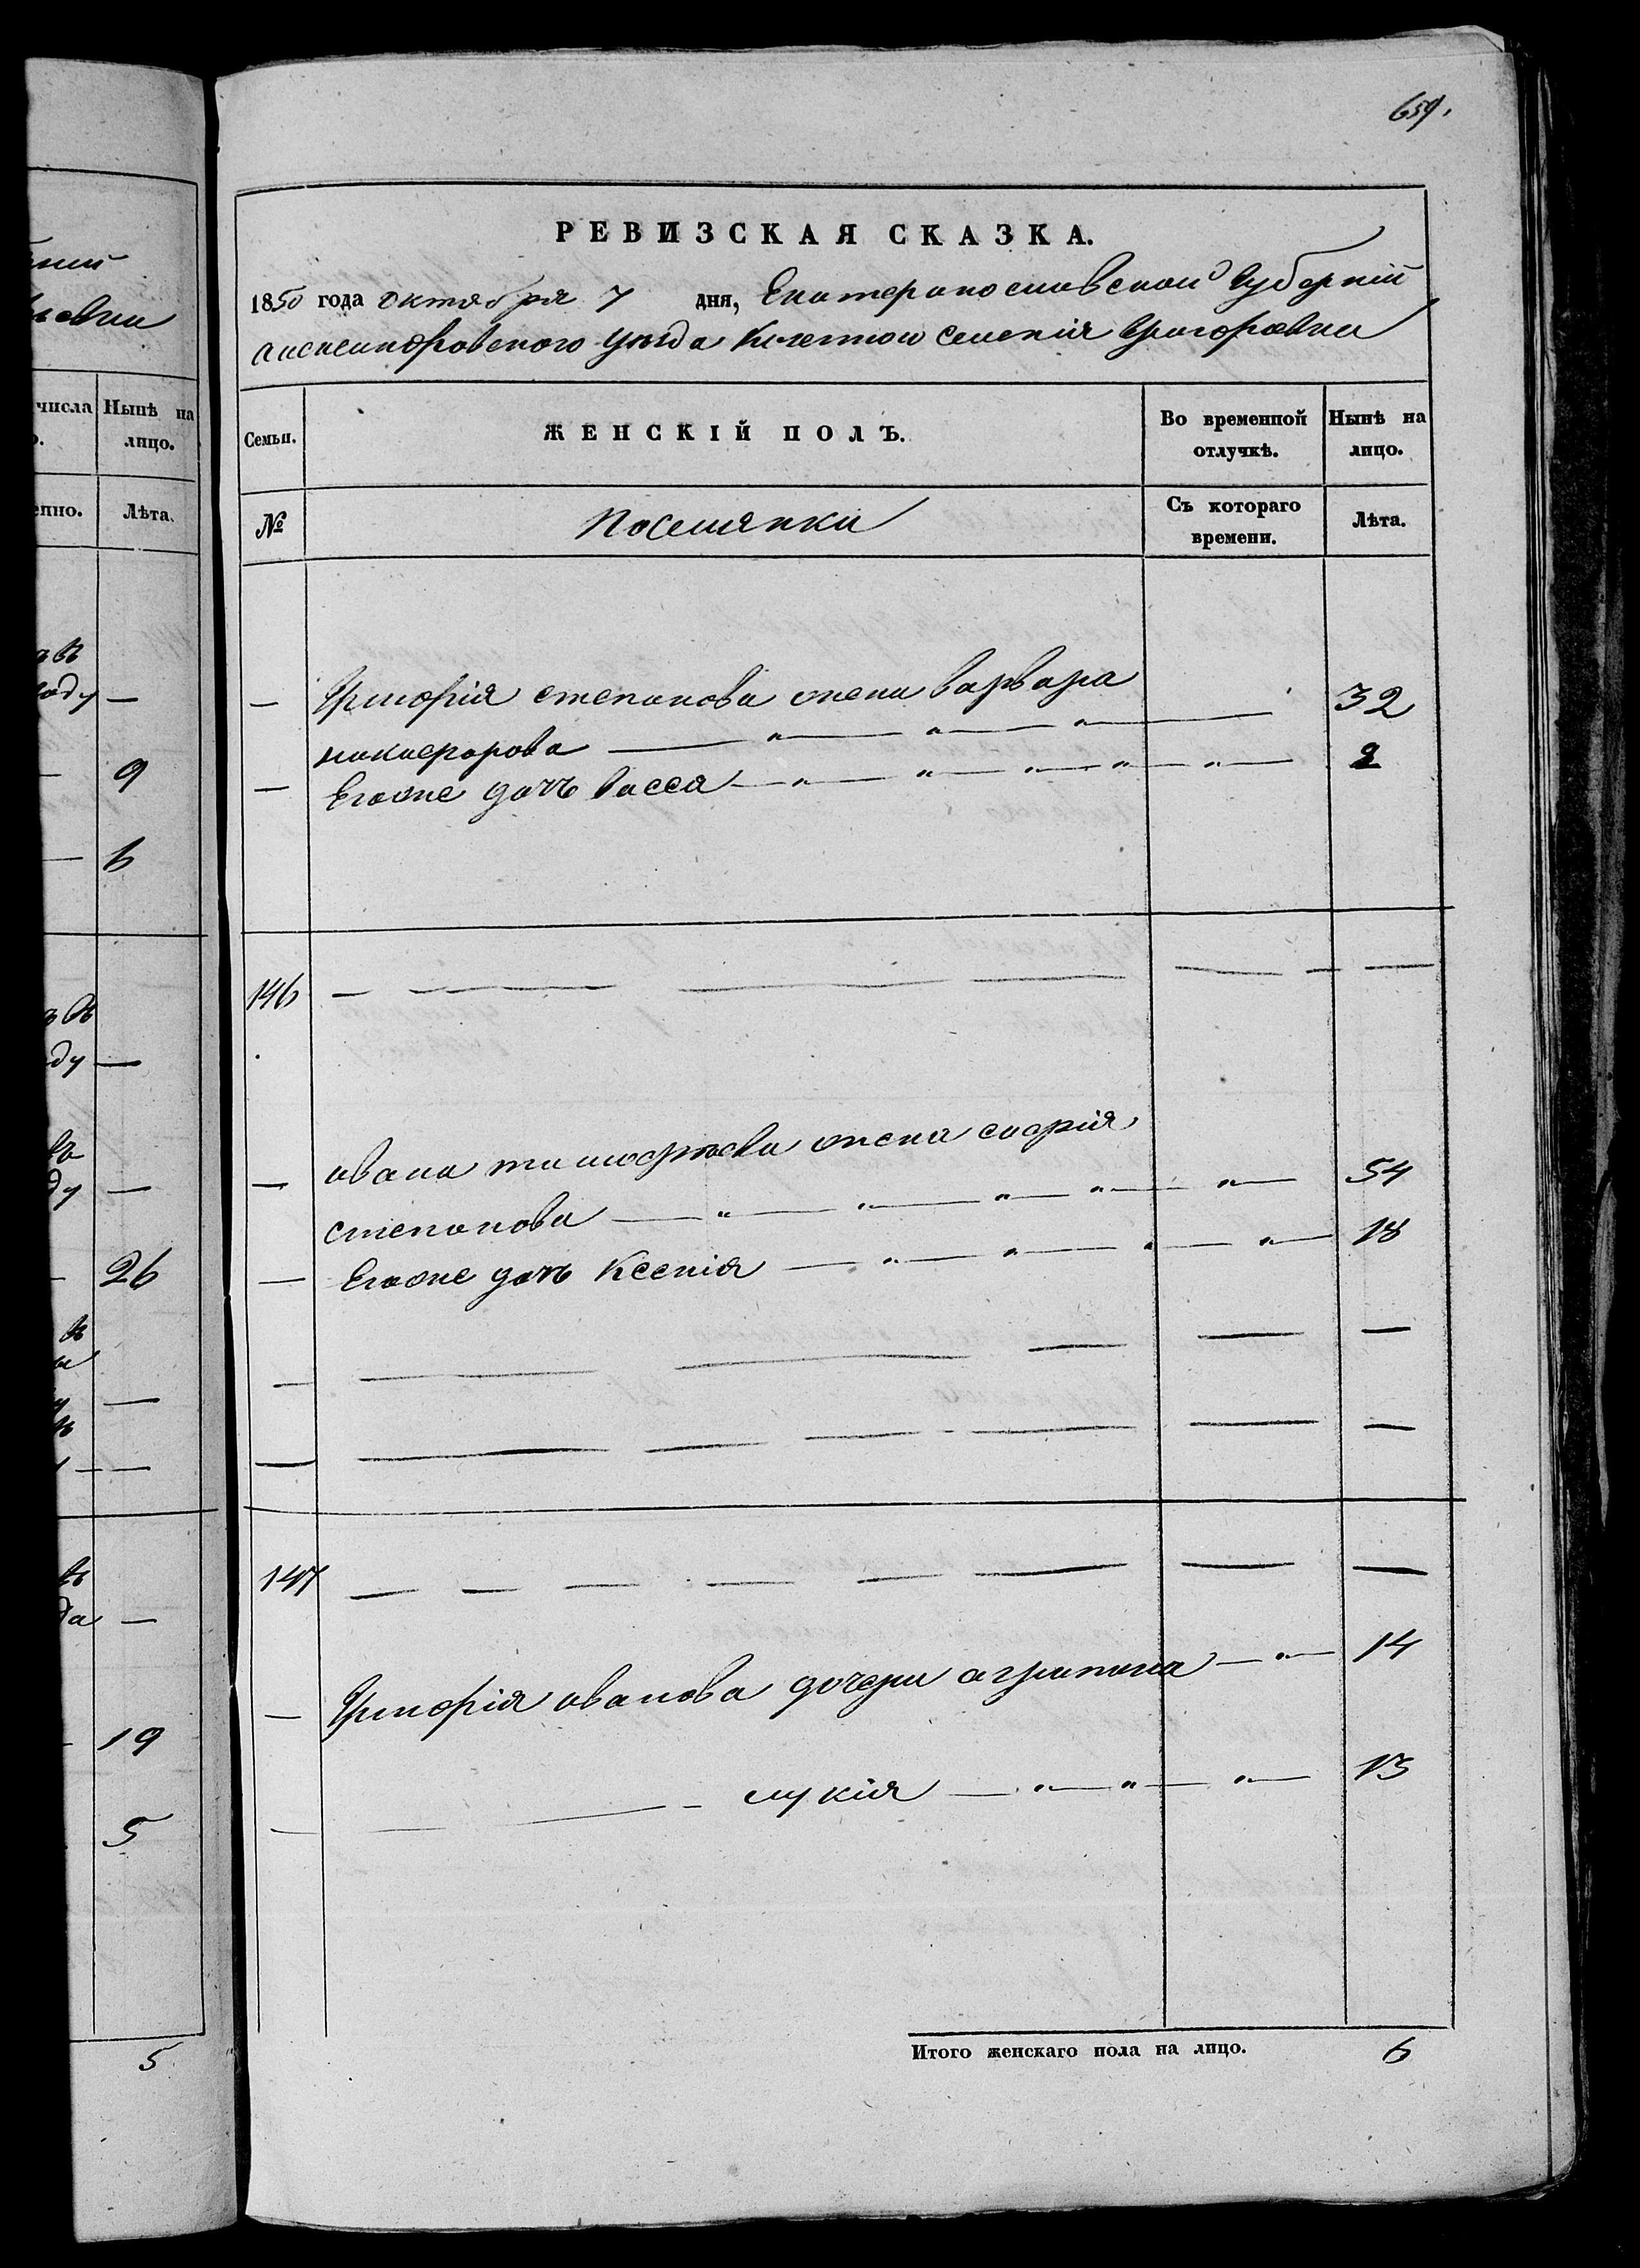 659.
РЕВИЗСКАЯ СКАЗКА.
1850 года октября 7 дня, Екатеринославской Губерніи
александровского уезда казенного селенія Григоровки
Семьи.
ЖЕНСКІЙ ПОЛЪ.
Во временной отлучкѣ.
Нынѣ на лицо.
№
Поселянки
Съ котораго времени.
Лѣта.
— Григорія степанова жена варвара
никифорова — 32
— Егоже дочь васса — 2
146 — — —
— ивана тимофеева жена софія
степанова — 54
— Егоже дочь Ксенія — 18
— — —
— — —
147 — — —
— Григорія иванова дочери агрипина — 14
— лукія — 13
Итого женскаго пола на лицо. 6
числа
Нынѣ на лицо.
Лѣта.
9
6
26
19
5
5